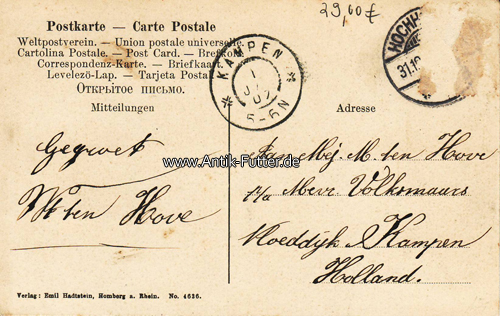 29,00 €
Postkarte — Carte Postale
Weltpostverein. — Union postale universelle
Cartolina Postale. — Post Card. — Brefkort
Correspondenz-Karte. — Briefkaart.
Levelező-Lap. — Tarjeta Postal
Открытое письмо.
Mitteilungen
KAMPEN
5-6N
HOCHH
31.10
Adresse
Gegroet
W ten Hove
www.Antik-Futter.de
Aan Mej. M. ten Hove
p/a Mevr Volksmaars
Hoeddijk Kampen
Holland.
Verlag: Emil Hadtstein, Homberg a. Rhein. No. 4626.